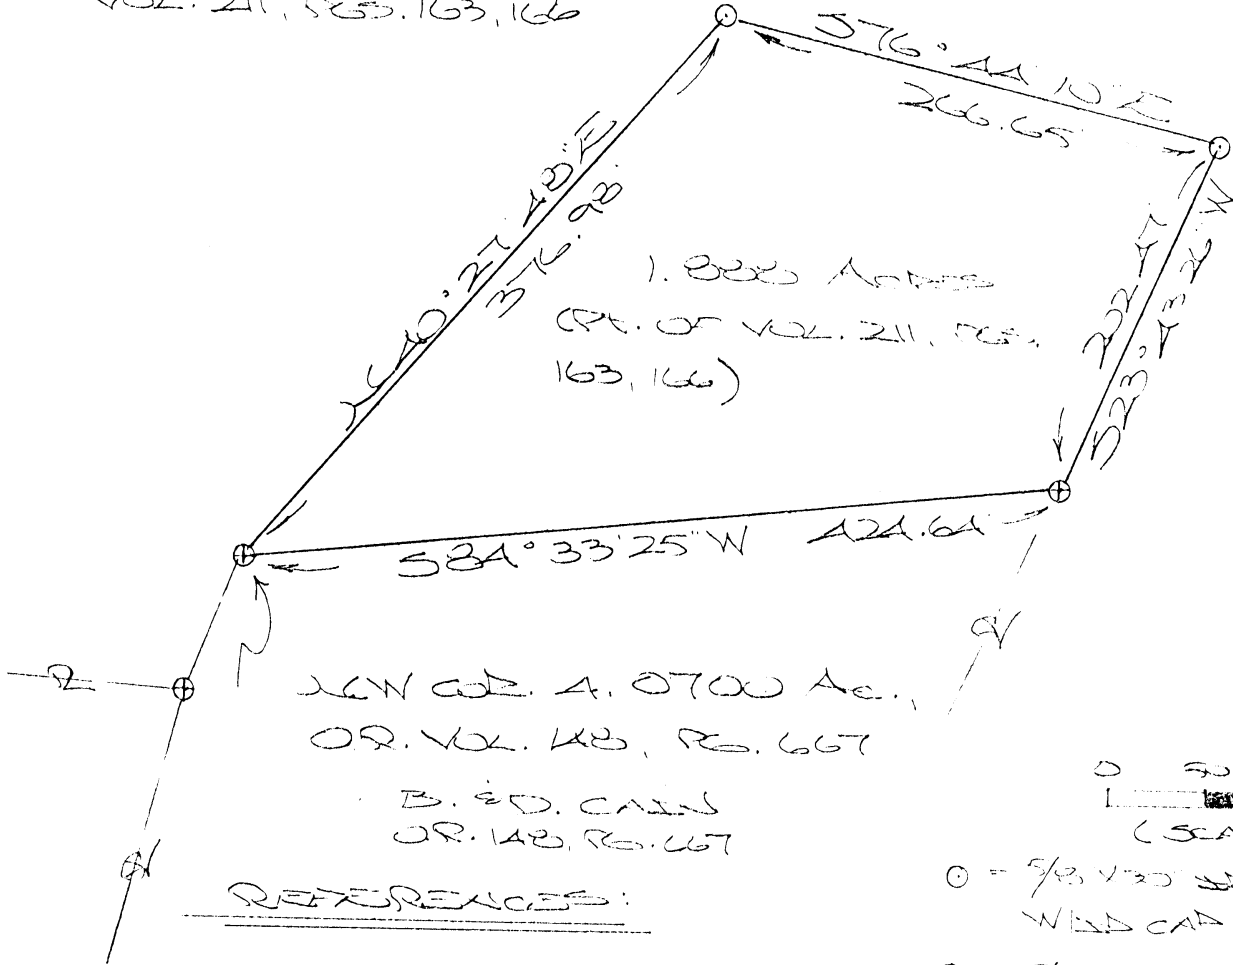 VOL. 211, PGS. 163, 166
S76°44'10"E
266.65'
N40°27'48"E
376.98'
1.888 Acres
(Pt. OF VOL. 211, PGS.
163, 166)
202.47
S23°43'26"W
S84°33'25"W 424.64'
NW COR. 4.0700 Ac.,
O.R. VOL. 148, PG. 667
B. & D. CAIN
O.R. 148, PG. 667
REFERENCES:
0 50
(SCA
= 5/8" X 30"
W/ID CAP